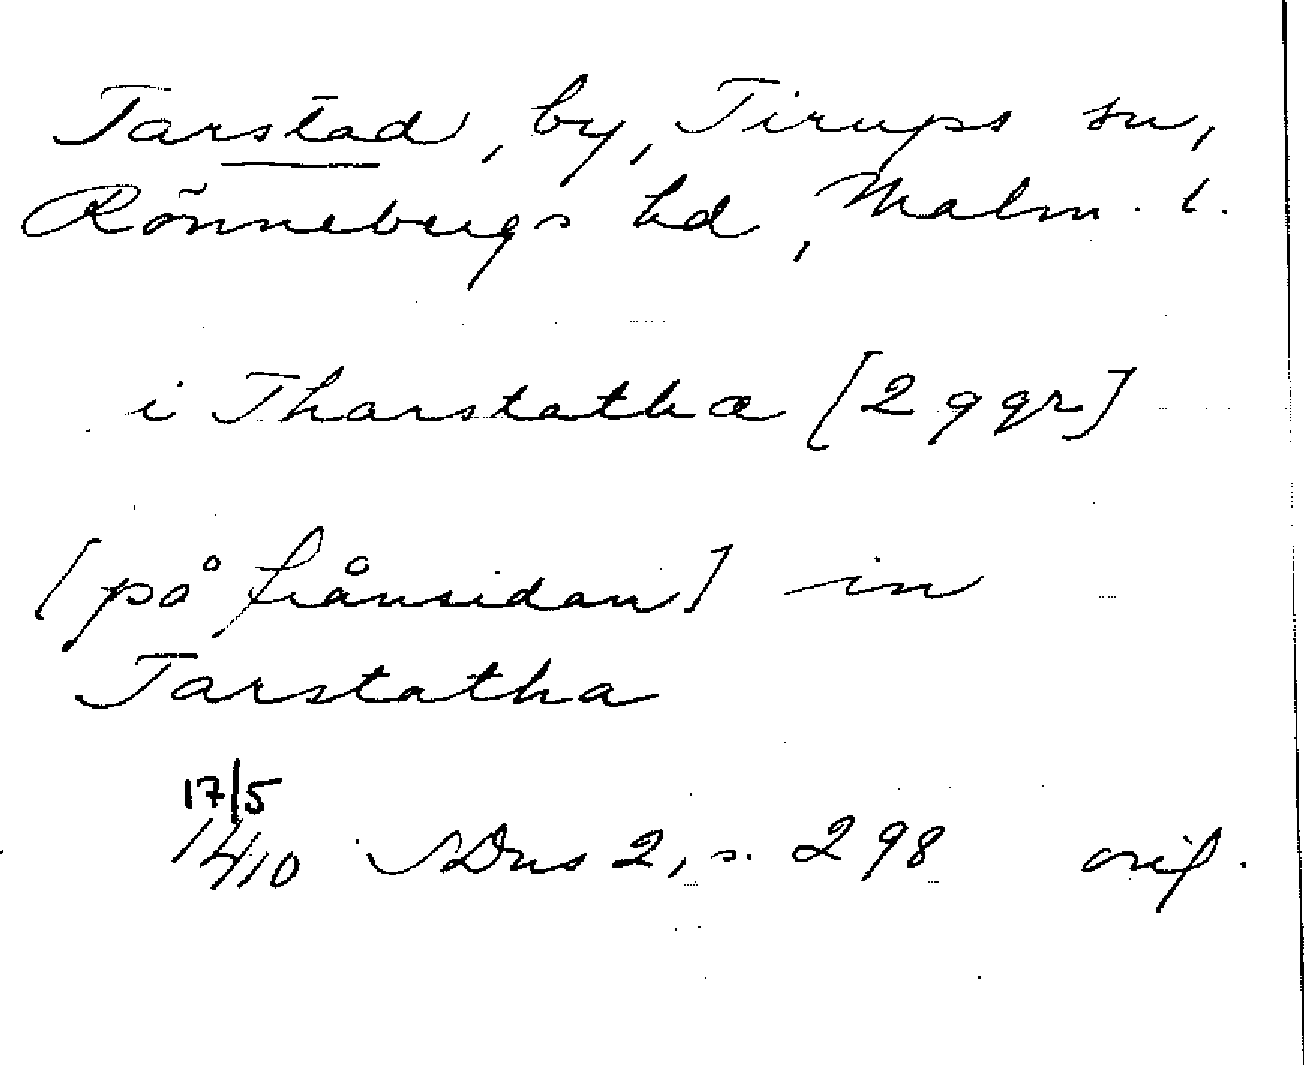 Tarstad, by, Tirups sn,
Rönnebergs hd, Malm. l.
i Tharstathæ [2 ggr]
[på frånsidan] in
Tarstatha
17/5
1410 SDns 2, s. 298 orig.